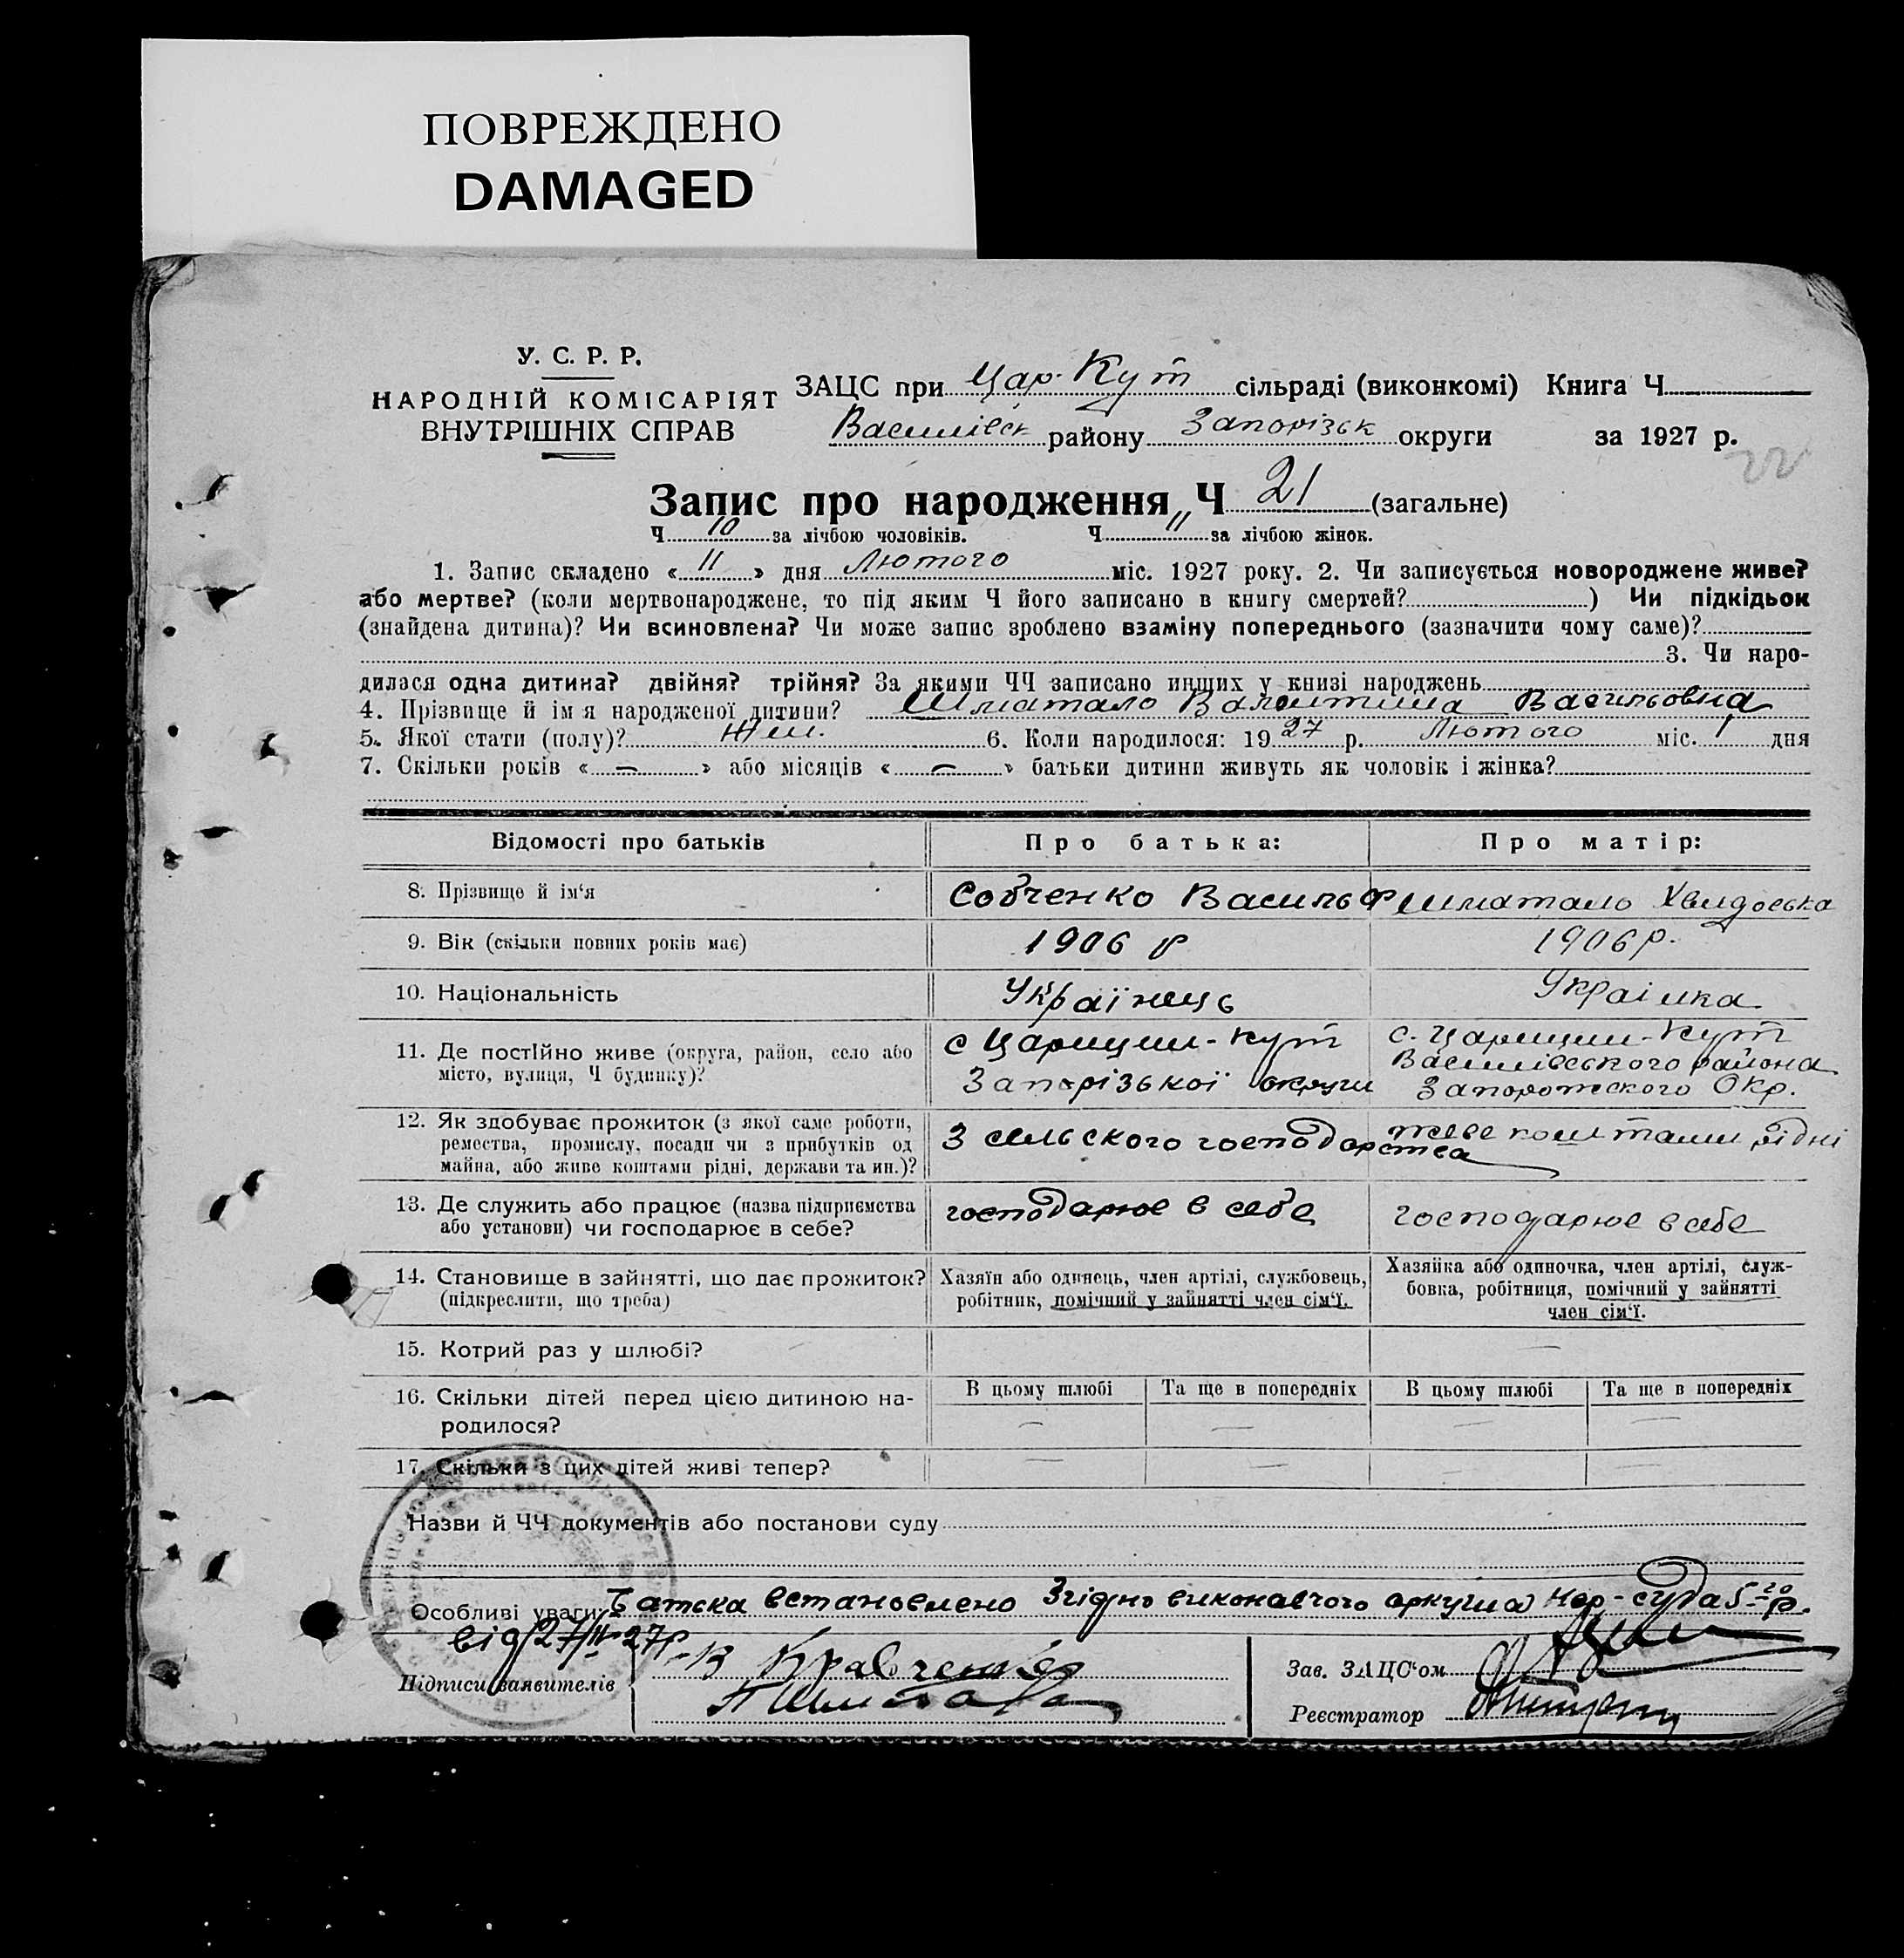 ПОВРЕЖДЕНО
DAMAGED
У. С. Р. Р.
НАРОДНІЙ КОМІСАРІЯТ
ВНУТРІШНІХ СПРАВ
ЗАЦС при Цар-Кут сільраді (виконкомі) Книга Ч
Василівск району Запорізьк округи за 1927 р.
22
Запис про народження Ч 21 (загальне)
Ч 10 за лічбою чоловіків. Ч 11 за лічбою жінок.
1. Запис складено « 11 » дня Лютого міс. 1927 року. 2. Чи записується новороджене живе?
або мертве? (коли мертвонароджене, то під яким Ч його записано в книгу смертей? ) Чи підкідьок
(знайдена дитина)? Чи всиновлена? Чи може запис зроблено взаміну попереднього (зазначити чому саме)?
3. Чи наро-
дилася одна дитина? двійня? трійня? За якими ЧЧ записано инших у книзі народжень
4. Прізвище й ім'я народженої дитини? Шматало Валентина Васильовна
5. Якої стати (полу)? Жін. 6. Коли народилося: 19 27 р. Лютого міс. 1 дня
7. Скільки років « — » або місяців « — » батьки дитини живуть як чоловік і жінка?
Відомості про батьків Про батька: Про матір:
8. Прізвище й ім'я Собченко Василь Ф Шматало Хвидоська
9. Вік (скільки повних років має) 1906 р 1906 р.
10. Національність Українець Украінка
11. Де постійно живе (округа, район, село або місто, вулиця, Ч будинку)? с Царицин-Кут Запорізької округи с. Царицин-Кут Василівського района Запорожского Окр.
12. Як здобуває прожиток (з якої саме роботи, ремества, промислу, посади чи з прибутків од майна, або живе коштами рідні, держави та ин.)? З сельского господарства живе коштами рідні
13. Де служить або працює (назва підприємства або установи) чи господарює в себе? господарює в себе господарює в себе
14. Становище в зайнятті, що дає прожиток? (підкреслити, що треба) Хазяїн або одинець, член артілі, службовець, робітник, помічний у зайнятті член сім'ї. Хазяйка або одиночка, член артілі, служ-бовка, робітниця, помічний у зайнятті член сім'ї.
15. Котрий раз у шлюбі? —
16. Скільки дітей перед цією дитиною на-родилося? В цьому шлюбі — Та ще в попередніх — В цьому шлюбі — Та ще в попередніх —
17. Скільки з цих дітей живі тепер? — — — —
Назви й ЧЧ документів або постанови суду
Особливі уваги: Батька встановлено Згідно виконавчого аркуша Нар-суда 5-го р.
від 27/IV-27р
Підписи заявителів В Кравченко
П Шматало
Зав. ЗАЦС'ом
Реєстратор